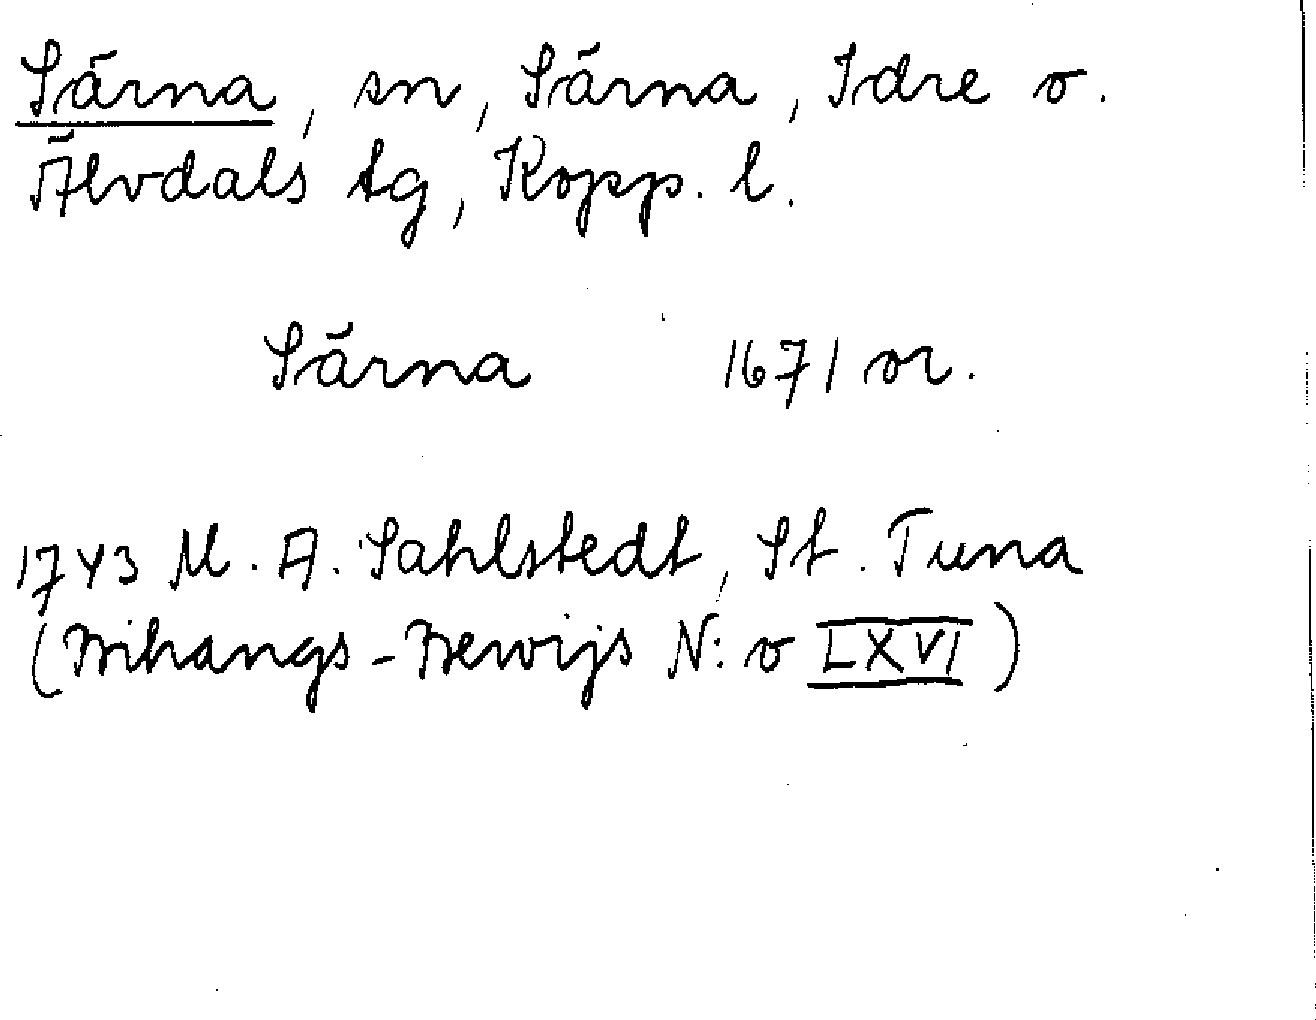 Särna, sn, Särna, Idre o.
Älvdals tg, Kopp. l.
Särna 1671 or.
1743 M. A. Sahlstedt, St. Tuna
(Bihangs-Bewijs N:o LXVI)